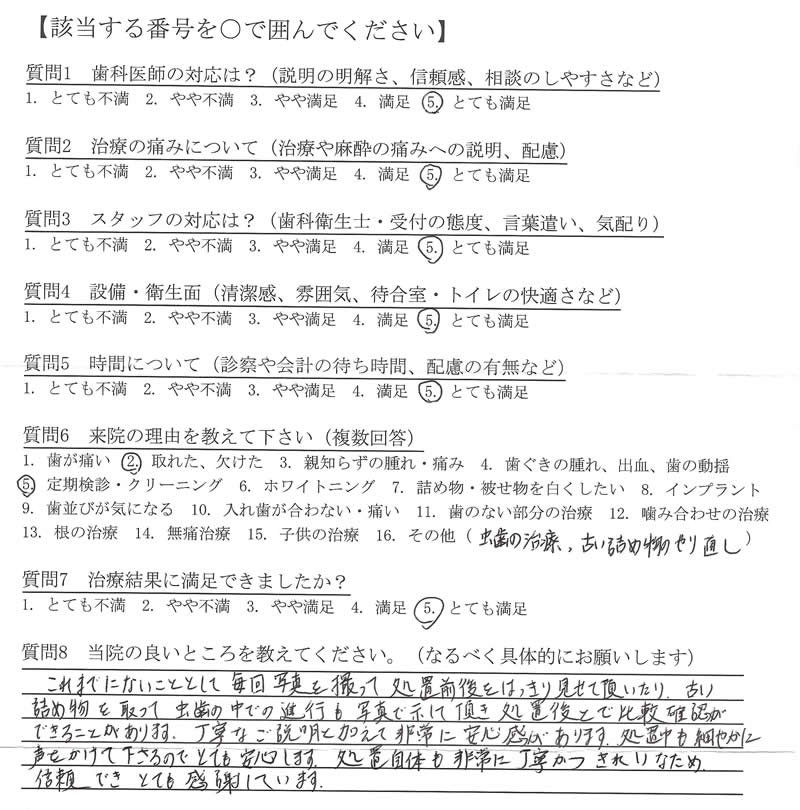 【該当する番号を○で囲んでください】
質問1 歯科医師の対応は？（説明の明解さ、信頼感、相談のしやすさなど）
1. とても不満 2. やや不満 3. やや満足 4. 満足 5. とても満足
質問2 治療の痛みについて（治療や麻酔の痛みへの説明、配慮）
1. とても不満 2. やや不満 3. やや満足 4. 満足 5. とても満足
質問3 スタッフの対応は？（歯科衛生士・受付の態度、言葉遣い、気配り）
1. とても不満 2. やや不満 3. やや満足 4. 満足 5. とても満足
質問4 設備・衛生面（清潔感、雰囲気、待合室・トイレの快適さなど）
1. とても不満 2. やや不満 3. やや満足 4. 満足 5. とても満足
質問5 時間について（診察や会計の待ち時間、配慮の有無など）
1. とても不満 2. やや不満 3. やや満足 4. 満足 5. とても満足
質問6 来院の理由を教えて下さい（複数回答）
1. 歯が痛い 2. 取れた、欠けた 3. 親知らずの腫れ・痛み 4. 歯ぐきの腫れ、出血、歯の動揺
5. 定期検診・クリーニング 6. ホワイトニング 7. 詰め物・被せ物を白くしたい 8. インプラント
9. 歯並びが気になる 10. 入れ歯が合わない・痛い 11. 歯のない部分の治療 12. 噛み合わせの治療
13. 根の治療 14. 無痛治療 15. 子供の治療 16. その他（虫歯の治療、古い詰め物のやり直し）
質問7 治療結果に満足できましたか？
1. とても不満 2. やや不満 3. やや満足 4. 満足 5. とても満足
質問8 当院の良いところを教えてください。（なるべく具体的にお願いします）
これまでにないこととして毎回写真を撮って処置前後をはっきり見せて頂いたり、古い
詰め物を取って虫歯の中での進行も写真で示して頂き処置後とで比較確認が
できることがあります。丁寧なご説明と加えて非常に安心感があります。処置中も細やかに
声をかけて下さるのでとても安心します。処置自体も非常に丁寧かつきれいなため、
信頼できとても感謝しています。